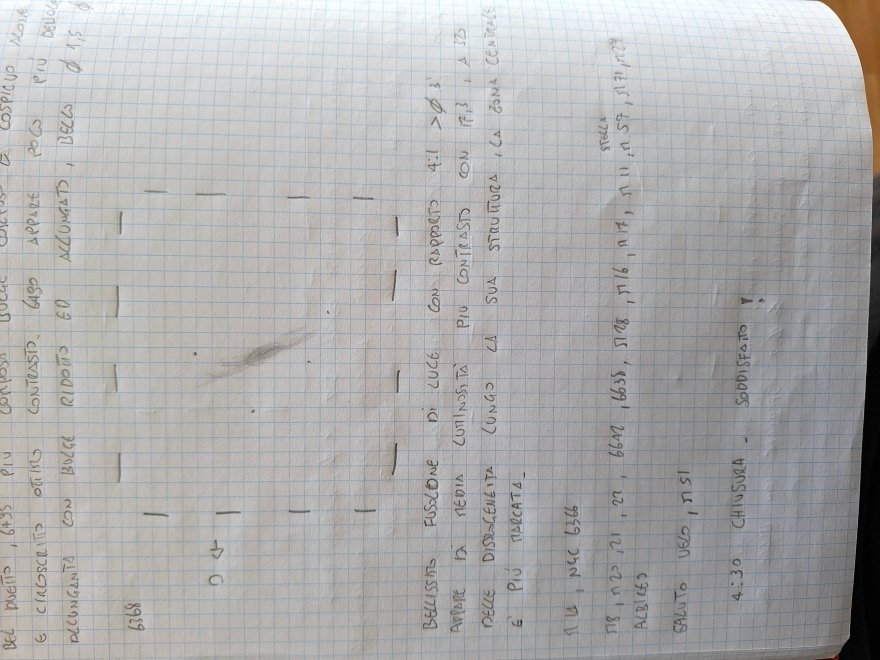 BEL DUETTO, 6495 PIÙ COSPICUO
E CIRCOSCRITTO OTTIMO CONTRASTO. 6490 APPARE POCO PIÙ
ALLUNGATA CON BULGE RIDOTTO ED ALLUNGATO, BELLO Ø 1,5
6368
BELLISSIMO FUSOLONE DI LUCE CON RAPPORTO 4:1 >Ø 3'
APPARE DI MEDIA LUMINOSITÀ PIÙ CONTRASTO CON 17,3, A SO
DELLE DISOGENEITÀ LUNGO LA SUA STRUTTURA, LA ZONA CENTRALE
È PIÙ MARCATA.
M14, NGC 6366
STELLA
M8, M20, 21, 22, 6642, 6638, M28, M16, M17, M11, M57, M71, M27
ALBIREO
SALUTO VELO, M51
4:30 CHIUSURA - SODDISFATTO!